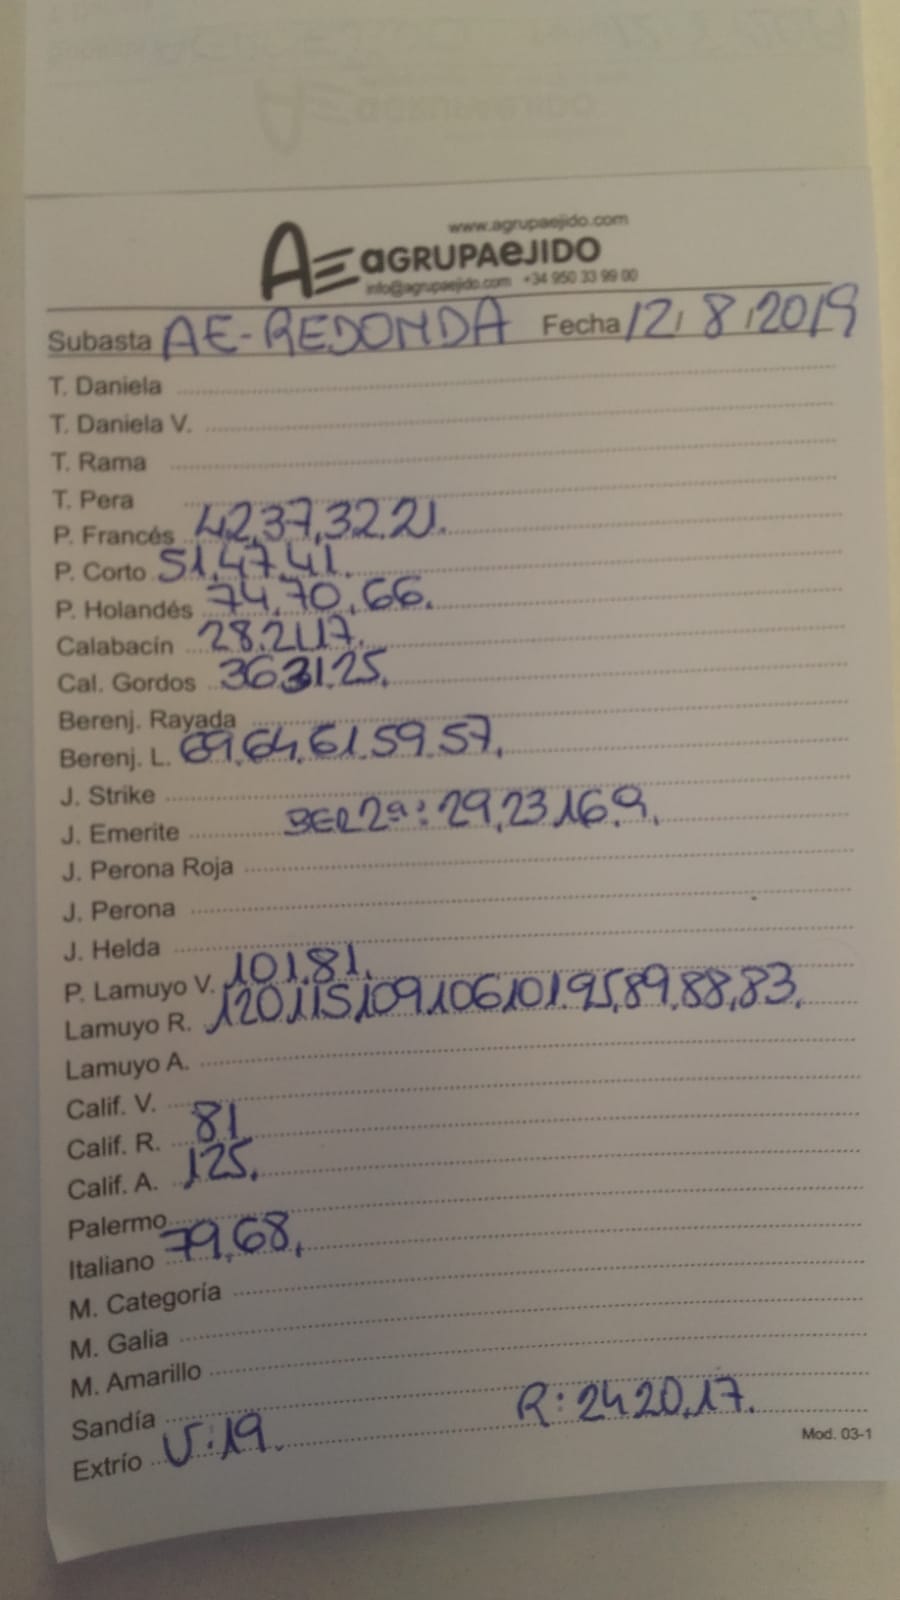 www.agrupaejido.com
AE aGRUPAeJIDO
info@agrupaejido.com +34 950 33 99 00
Subasta AE-REDONDA Fecha 12/ 8 /2019
T. Daniela
T. Daniela V.
T. Rama
T. Pera
P. Francés 42,37,32.21.
P. Corto 51,47.41.
P. Holandés 74,70,66.
Calabacín 28.21.17.
Cal. Gordos 36.31.25.
Berenj. Rayada
Berenj. L. 69,64,61.59.57.
J. Strike
J. Emerite BER2ª: 29,23.16.9.
J. Perona Roja
J. Perona
J. Helda
P. Lamuyo V. 101.81.
Lamuyo R. 120.115.109.106.101.95,89.88,83.
Lamuyo A.
Calif. V.
Calif. R. 81
Calif. A. 125.
Palermo
Italiano 79,68,
M. Categoría
M. Galia
M. Amarillo
Sandía
Extrío V:19. R:24.20.17.
Mod. 03-1